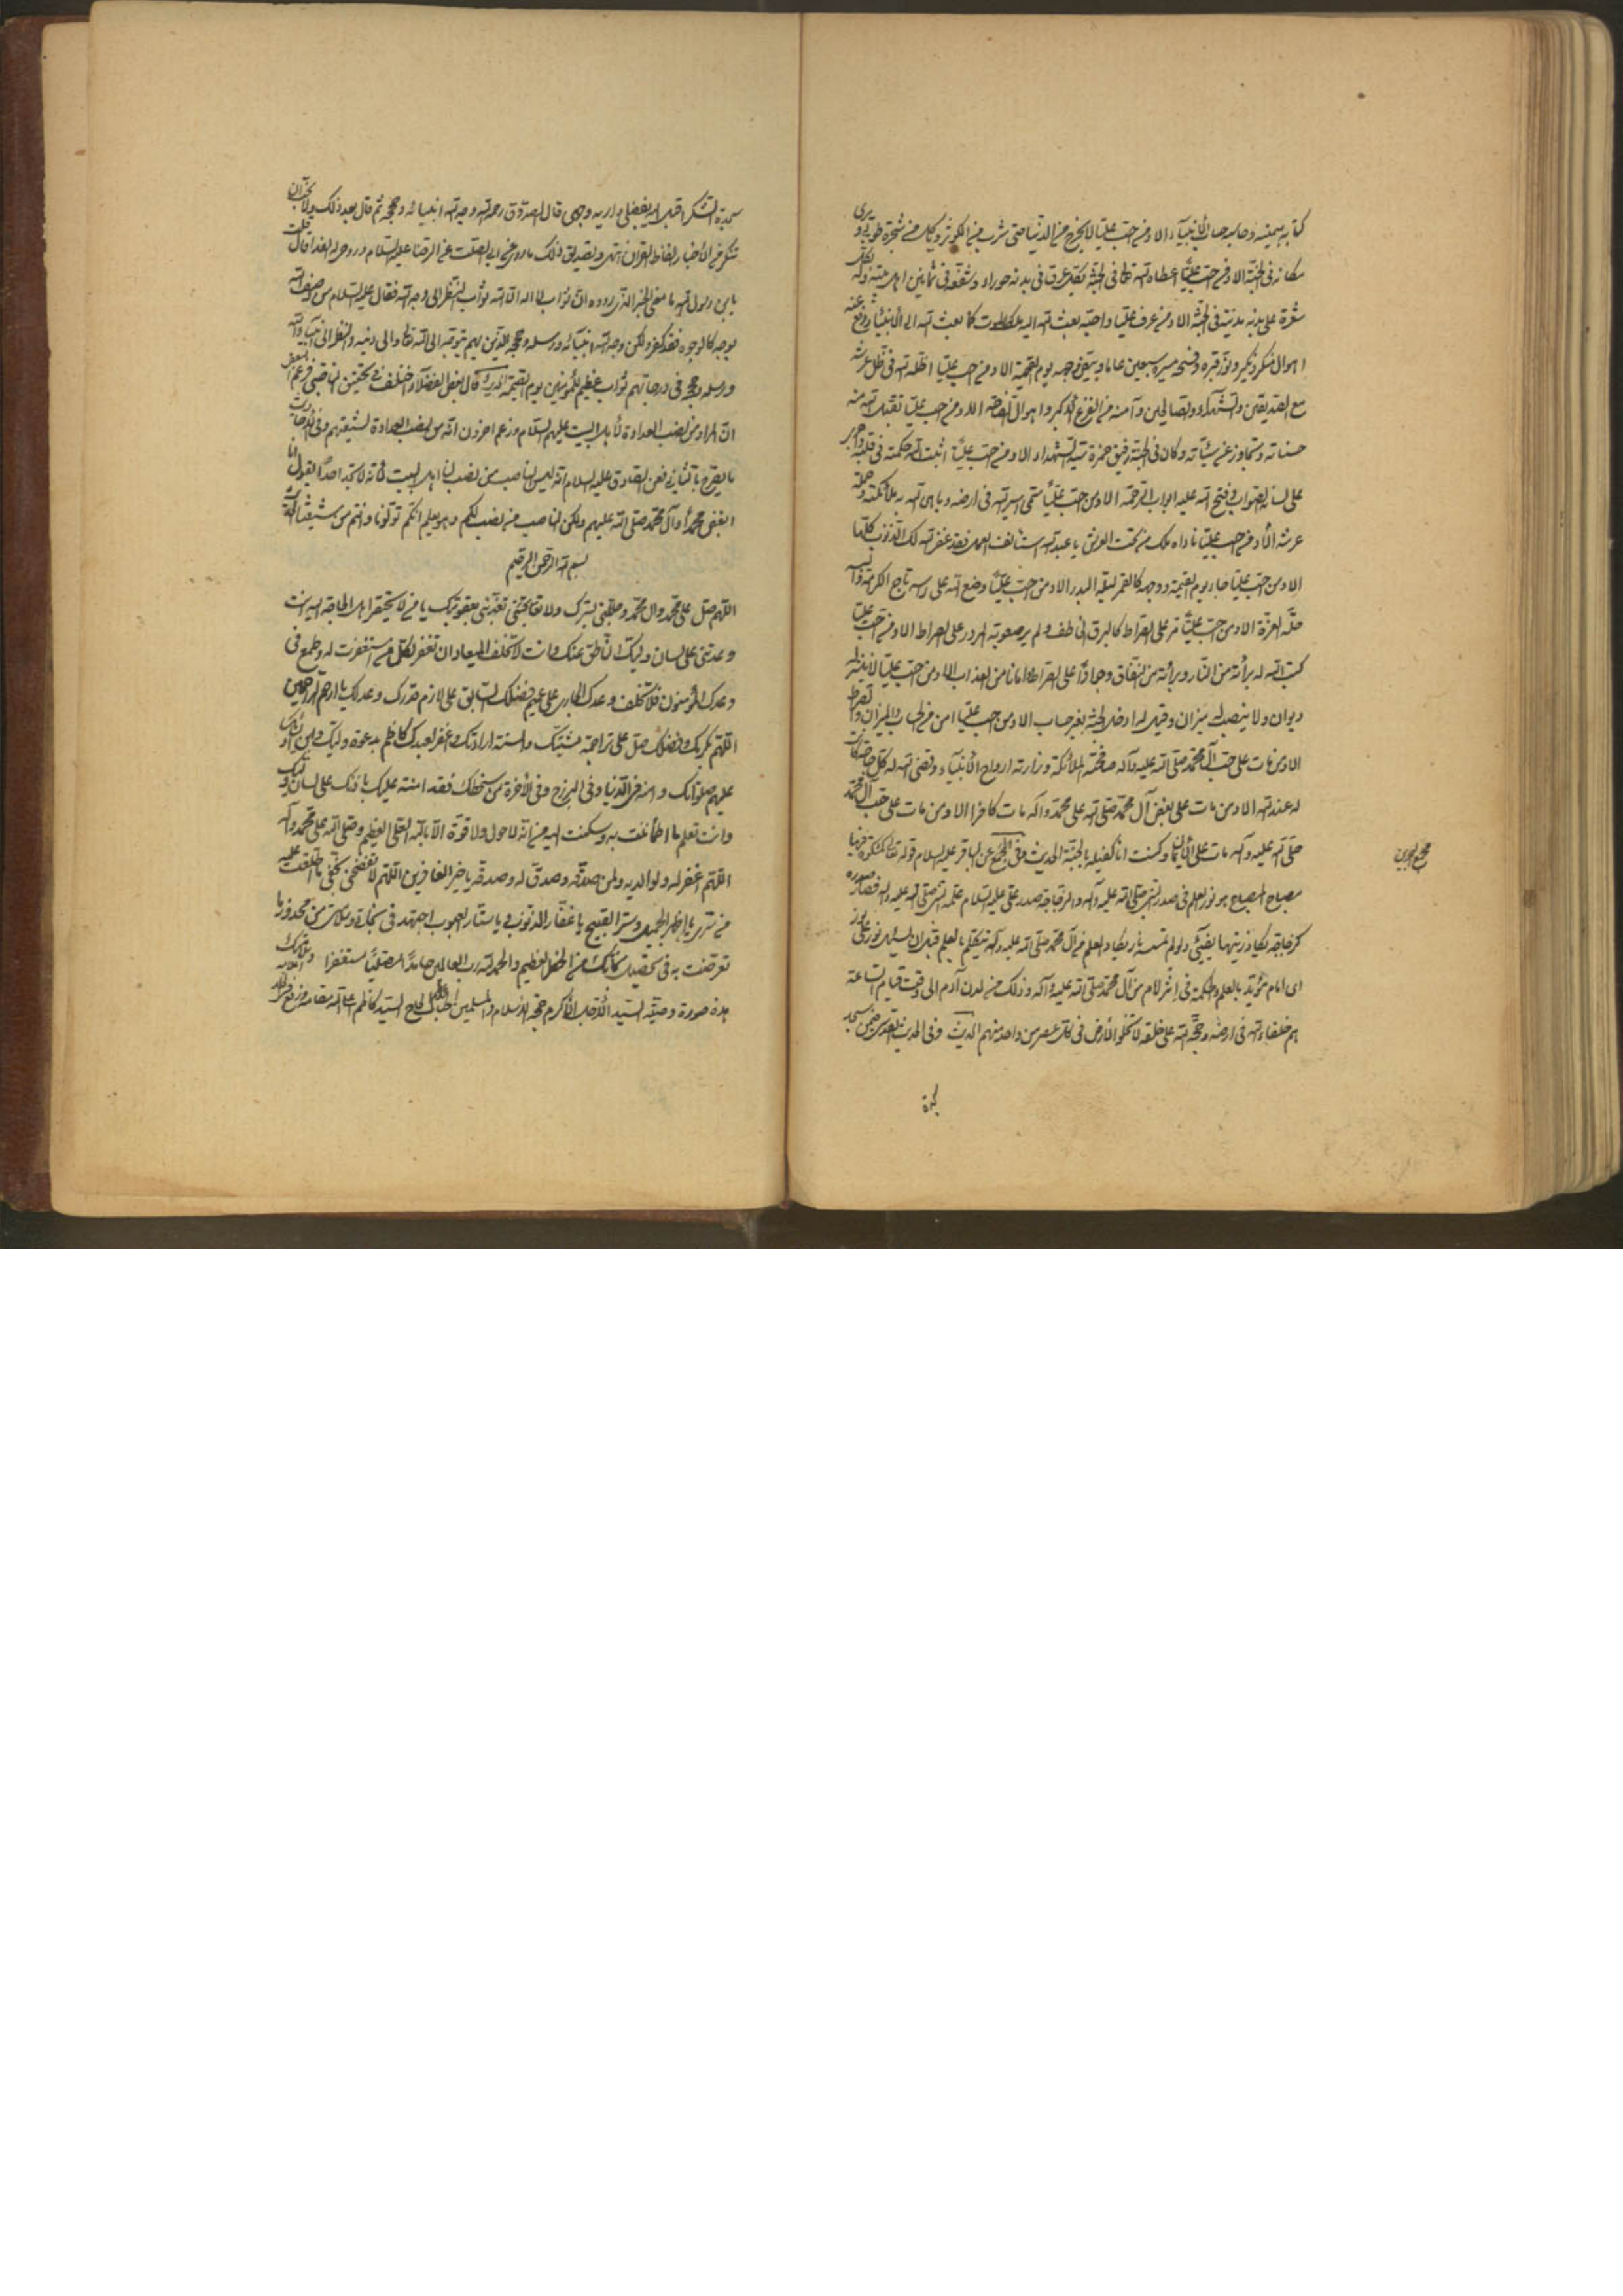 كتابه بيمينه وحاسبه حساب الأنبياء الا ومن احب عليّا لا يخرج من الدنيا حتى يشرب من الكوثر وياكل من شجرة طوبى ويرى
مكانه فى الجنّة الا ومن احب عليّا اعطاه الله تعالى فى الجنّة بكل عرق فى بدنه حوراء وشفّعه فى ثمانين من اهل بيته وله بكل
شعرة على بدنه مدينة فى الجنّة الا ومن عرف عليّا واحبّه بعث الله اليه ملك الموت كما بعث الله الى الأنبياء ورفع عنه
اهوال منكر ونكير ونوّر قبره وفسحه مسيرة سبعين عاما وبيّض وجهه يوم القيمة الا ومن احب عليّا اظله الله فى ظل عرشه
مع الصديقين والشهداء والصالحين وآمنه من الفزع الأكبر واهوال الصاخة الا ومن احب عليّا تقبل الله منه
حسناته وتجاوز عن سيئاته وكان فى الجنّة رفيق حمزة سيد الشهداء الا ومن احب عليّا اثبت الله الحكمة فى قلبه واجرى
على لسانه الصواب وفتح الله عليه ابواب الرحمة الا ومن احب عليّا سمّى اسير الله فى ارضه وباهى الله به ملائكته وحملة
عرشه الا ومن احب عليّا ناداه ملك من تحت العرش يا عبد الله استأنف العمل فقد غفر الله لك الذنوب كلّها
الا ومن احب عليّا جاء يوم القيمة ووجهه كالقمر ليلة البدر الا ومن احب عليّا وضع الله على راسه تاج الكرامة والبسه
حلّة العزّة الا ومن احب عليّا مر على الصراط كالبرق الخاطف ولم ير صعوبة المرور على الصراط الا ومن احب عليّا
كتب الله له برائة من النار وبرائة من النفاق وجوازا على الصراط وامانا من العذاب الا ومن احب عليّا لا ينشر له
ديوان ولا ينصب له ميزان وقيل له ادخل الجنّة بغير حساب الا ومن احب عليّا امن من الحساب والميزان والصراط
الا ومن مات على حب آل محمد صلى الله عليه وآله صافحته الملائكة وزارته ارواح الأنبياء وقضى الله له كل حاجة كانت
له عند الله الا ومن مات على بغض آل محمد صلى الله على محمد واله مات كافرا الا ومن مات على حب آل محمد
صلى الله عليه وآله مات على الأيمان وكنت انا كفيله بالجنّة الحديث وفى المجمع عن الباقر عليه السلام قوله تعالى كمشكوة فيها
مصباح المصباح هو نور العلم فى صدر النبى صلى الله عليه وآله والزجاجة صدر على عليه السلام علمه النبى صلى الله عليه وآله فصار صدره
كزجاجة يكاد زيتها يضيئ ولو لم تمسسه نار يكاد العلم من آل محمد صلى الله عليه وآله يتكلم بالعلم قبل ان يسئل نور على نور
اى امام مؤيّد بالعلم والحكمة فى اثر الامام من آل محمد صلى الله عليه وآله وذلك من لدن آدم الى وقت قيام الساعة
هم خلفاء الله فى ارضه وحججه الله على خلقه لا تخلو الأرض فى كل عصر من واحد منهم الحديث وفى الحديث القدسى سجد
مجمع البحرين
سجدة
سجدة الشكر اقبل اليه بفضلى واريه وجهى قال الصدوق رحمه الله وجه الله انبيائه وحججه ثم قال بعد ذلك ولا يجب ان
تنكر من الأخبار الفاظ القران انتهى وتصديق ذلك ما روى عن ابى الصلت عن الرضا عليه السلام وروحى له الفداء قال قلت
يابن رسول الله ما معنى الخبر الذى رووه ان ثواب لا اله الا الله ثواب النظر الى وجه الله فقال عليه السلام من وصف الله
بوجه كالوجوه فقد كفر ولكن وجه الله انبيائه ورسله وحججه الذين بهم يتوجه الى الله تعالى والى دينه والنظر الى انبياء الله
ورسله وحججه فى درجاتهم ثواب عظيم للمؤمنين يوم القيمة الحديث قال بعض الفضلاء اختلف فى تحقيق الناصبى فزعم البعض
ان المراد من نصب العداوة لأهل البيت عليهم السلام وزعم اخرون انه من نصب العداوة لشيعتهم وفى الأحاديث
ما يصرح بالثانى فعن الصادق عليه السلام انه ليس الناصب من نصب لنا اهل البيت لأنه لا تجد احدا يقول انا
ابغض محمدا وآل محمد صلى الله عليهم ولكن الناصب من نصب لكم وهو يعلم انكم تولونا وانتم من شيعتنا
بسم الله الرحمن الرحيم
اللهم صل على محمد وال محمد وجللنى بسترك ولا تعذبنى بعقوبتك يا من لا يحتقر اهل الحاجة اليه انت
وعدتنى على لسان وليك الناطق عنك وانت لا تخلف الميعاد ان تغفر لكل من استغفرت له وطمع فى
وعدك المؤمنون فلا تخلف وعدك الجارى على عميم فضلك السابق على لازم قدرك وعدلك يا ارحم الراحمين
اللهم بكرمك وفضلك صل على تراجمة مشيتك والسنة ارادتك واغفر لعبدك كاظم بدعوة وليك
عليهم صلواتك وامنه فى الدنيا وفى البرزخ وفى الأخرة من سخطك فقد امنته عليك باذنك على لسان وليك
وانت تعلم ما اطمأننت به وسكنت اليه من انه لا حول ولا قوة الا بالله العلى العظيم وصلى الله على محمد وآله
اللهم اغفر له ولوالديه ولمن صدّقه وصدق له وصدقه يا خير الغافرين اللهم لا تفضحنى بخفى ما اطلعت عليه
من سرى يا من اظهر الجميل وستر القبيح يا غفار الذنوب ويا ستار العيوب اجتهد فى نجاتى وسلامتى من محذور ما
تعرضت به فى تحصيل من الحظ العظيم والحمد لله رب العالمين حامدا مصليا مستغفرا
هذه صورة وصية السيد الأجل الأكرم حجة الاسلام والمسلمين الحاج السيد كاظم اعلى الله مقامه ورفع